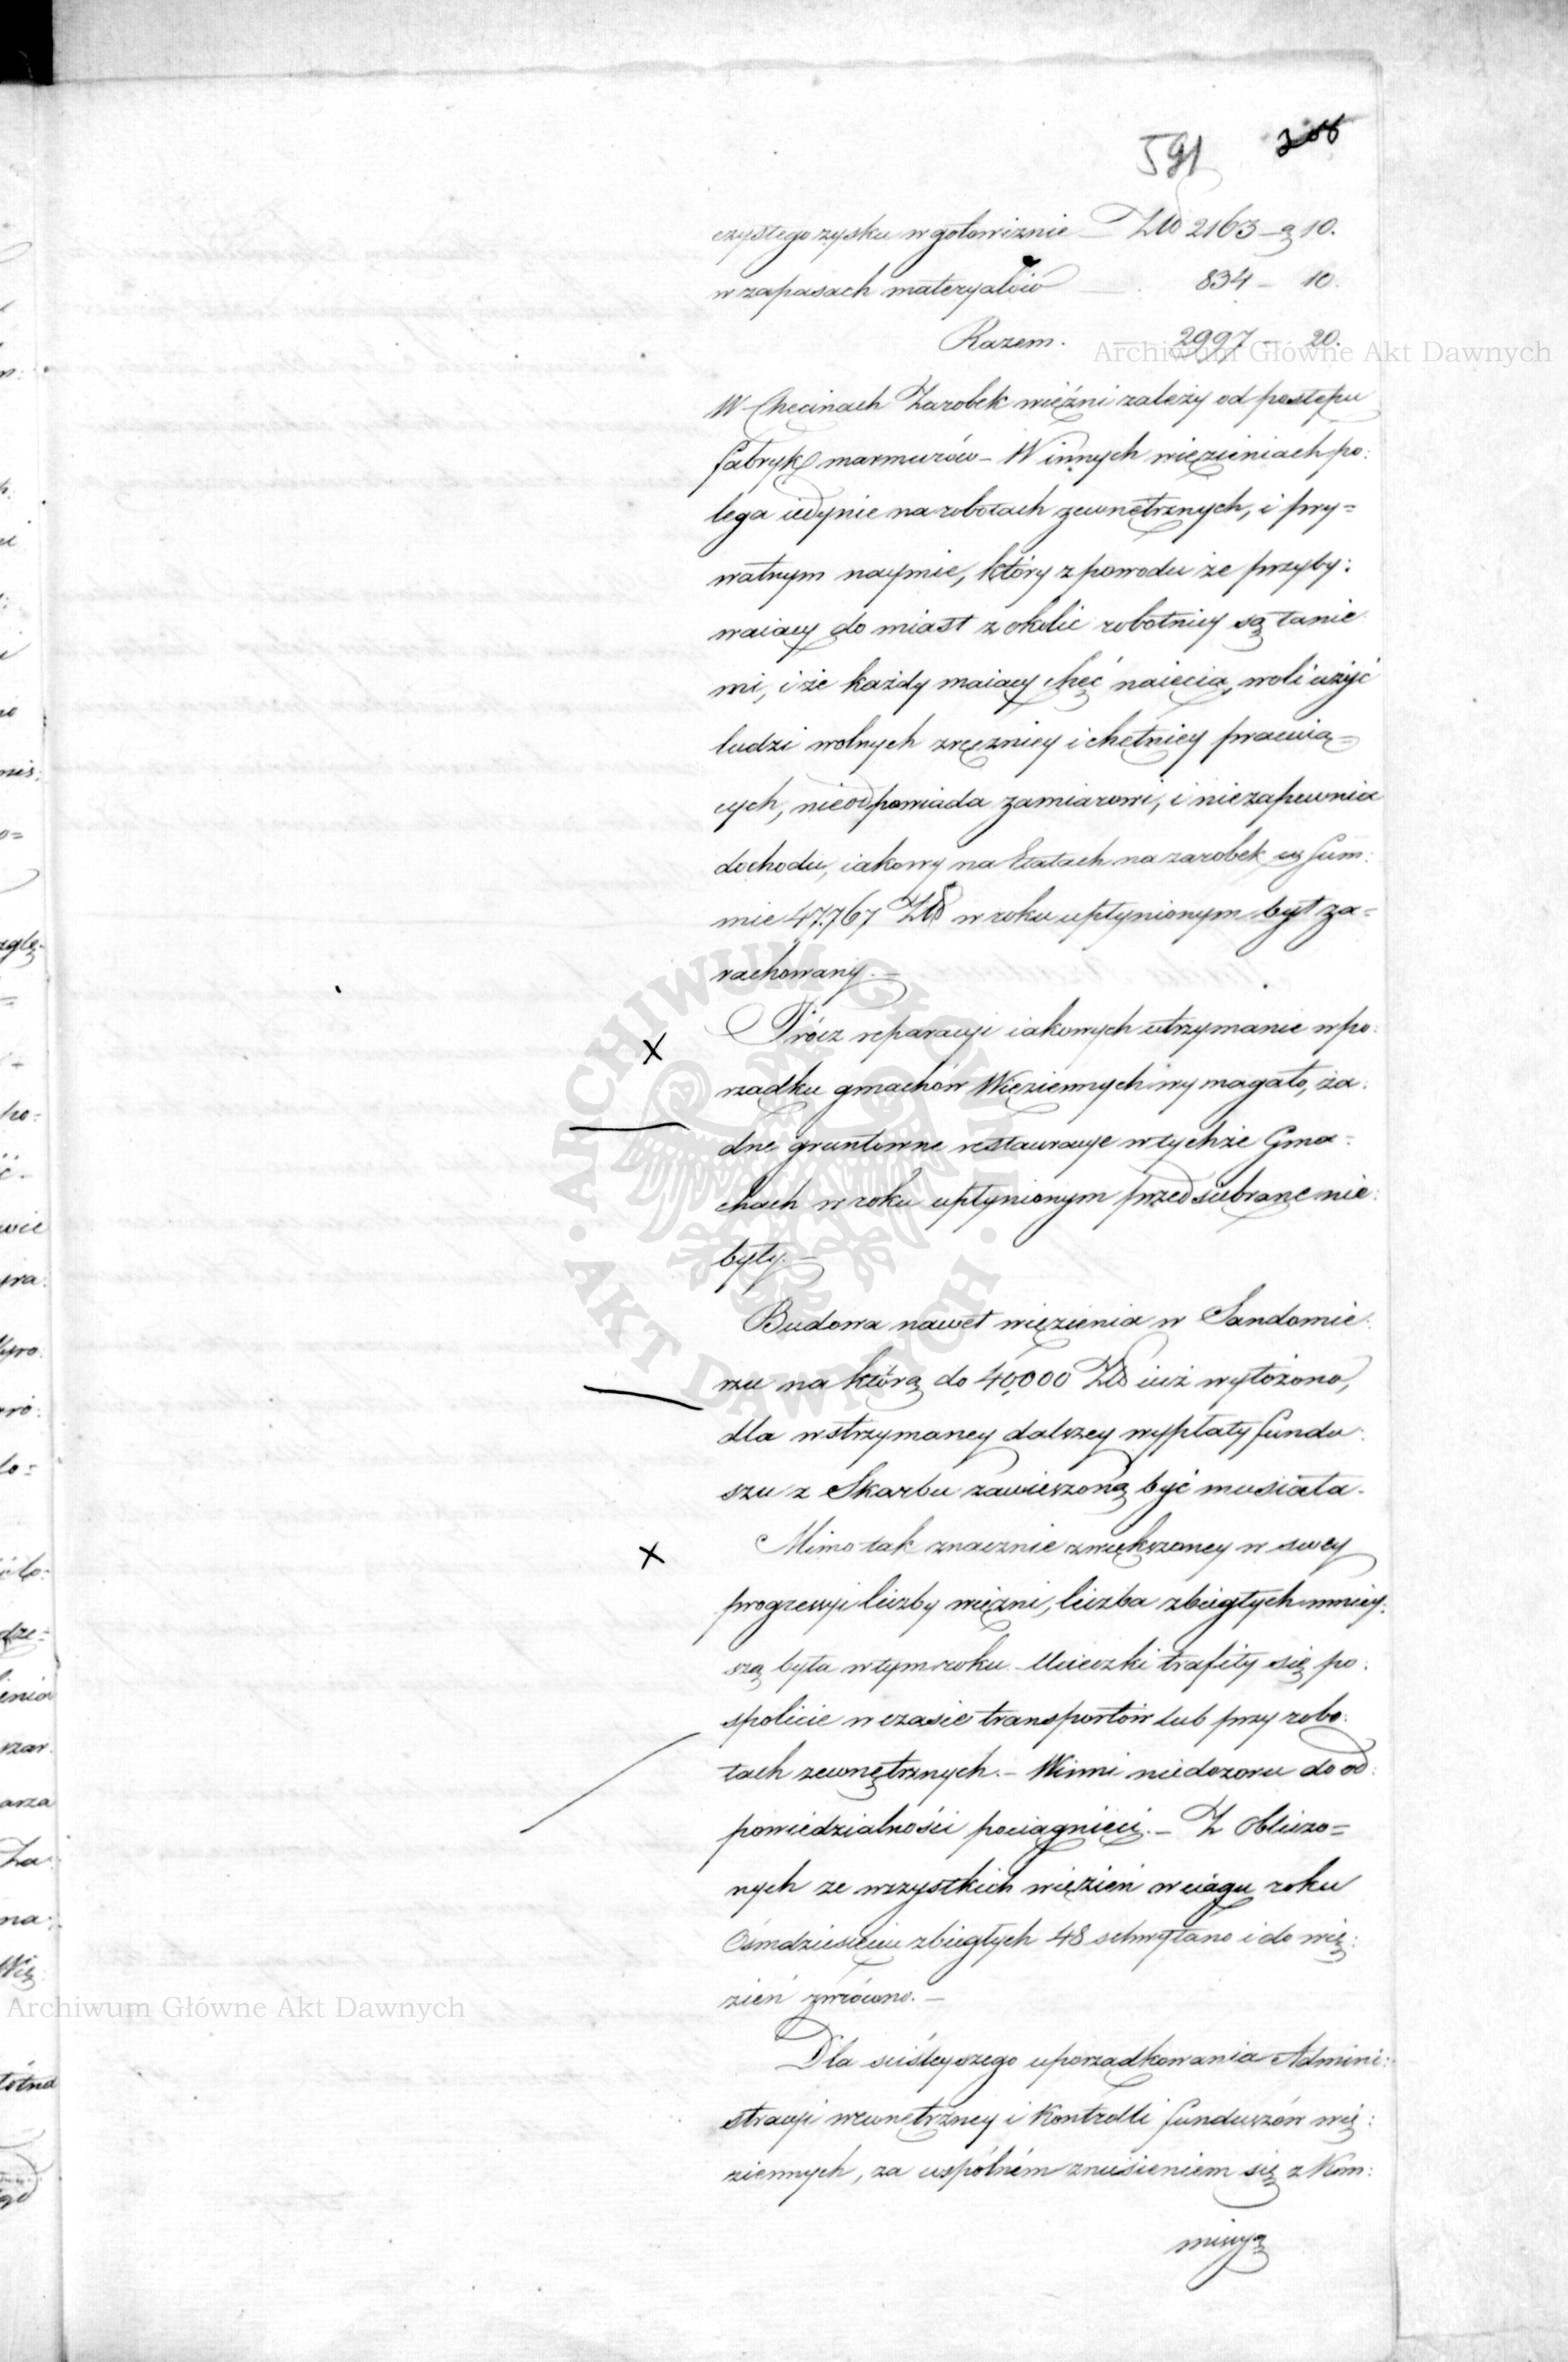 591
czystego zysku w gotowiznie — Złp 2163 – g 10.
w zapasach materyałów — 834 – 10.
Razem. — 2997 – 20.
Archiwum Główne Akt Dawnych
W Chęcinach Zarobek więźni zależy od postępu
fabryk marmurów – W innych więzieniach po:
lega iedynie na robotach zewnętrznych, i pry=
watnym naymie, który z powodu że przyby:
waiący do miast z okolic robotnicy są tanie
mi, i że każdy maiący chęć naięcia, woli użyć
ludzi wolnych zręczniey i chętniey pracuią=
cych, nieodpowiada zamiarowi, i niezapewnia
dochodu, iakowy na Etatach na zarobek w Sum:
mie 47.767 Złp w roku upłynionym był za=
rachowany. –
Prócz reparacyi iakowych utrzymanie w po:
rządku gmachów Więziennych wymagało, ża:
dne gruntowne restauracye w tychże Gma:
chach w roku upłynionym przedsiębrane nie
były. –
Budowa nawet więzienia w Sandomie:
rzu na którą do 40,000 Złp iuż wyłożono,
dla wstrzymaney dalszey wypłaty fundu:
szu z Skarbu zawieszoną być musiała.
Mimo tak znacznie zwiększoney w swey
progressyi liczby więźni, liczba zbiegłych mniey:
szą była w tym roku. Ucieczki trafiły się po:
spolicie w czasie transportów lub przy robo:
tach zewnętrznych. – Winni niedozoru do od:
powiedzialności pociągnięci. – Z obliczo=
nych ze wszystkich więzień w ciągu roku
Ośmdziesięciu zbiegłych 48 schwytano i do wię:
zień zwrócono. –
Archiwum Główne Akt Dawnych
Dla ściśleyszego uporządkowania Admini:
stracyi wewnętrzney i Kontrolli funduszów wię:
ziennych, za wspólném zniesieniem się z Kom:
missyą
ARCHIWUM GŁÓWNE · AKT DAWNYCH ·